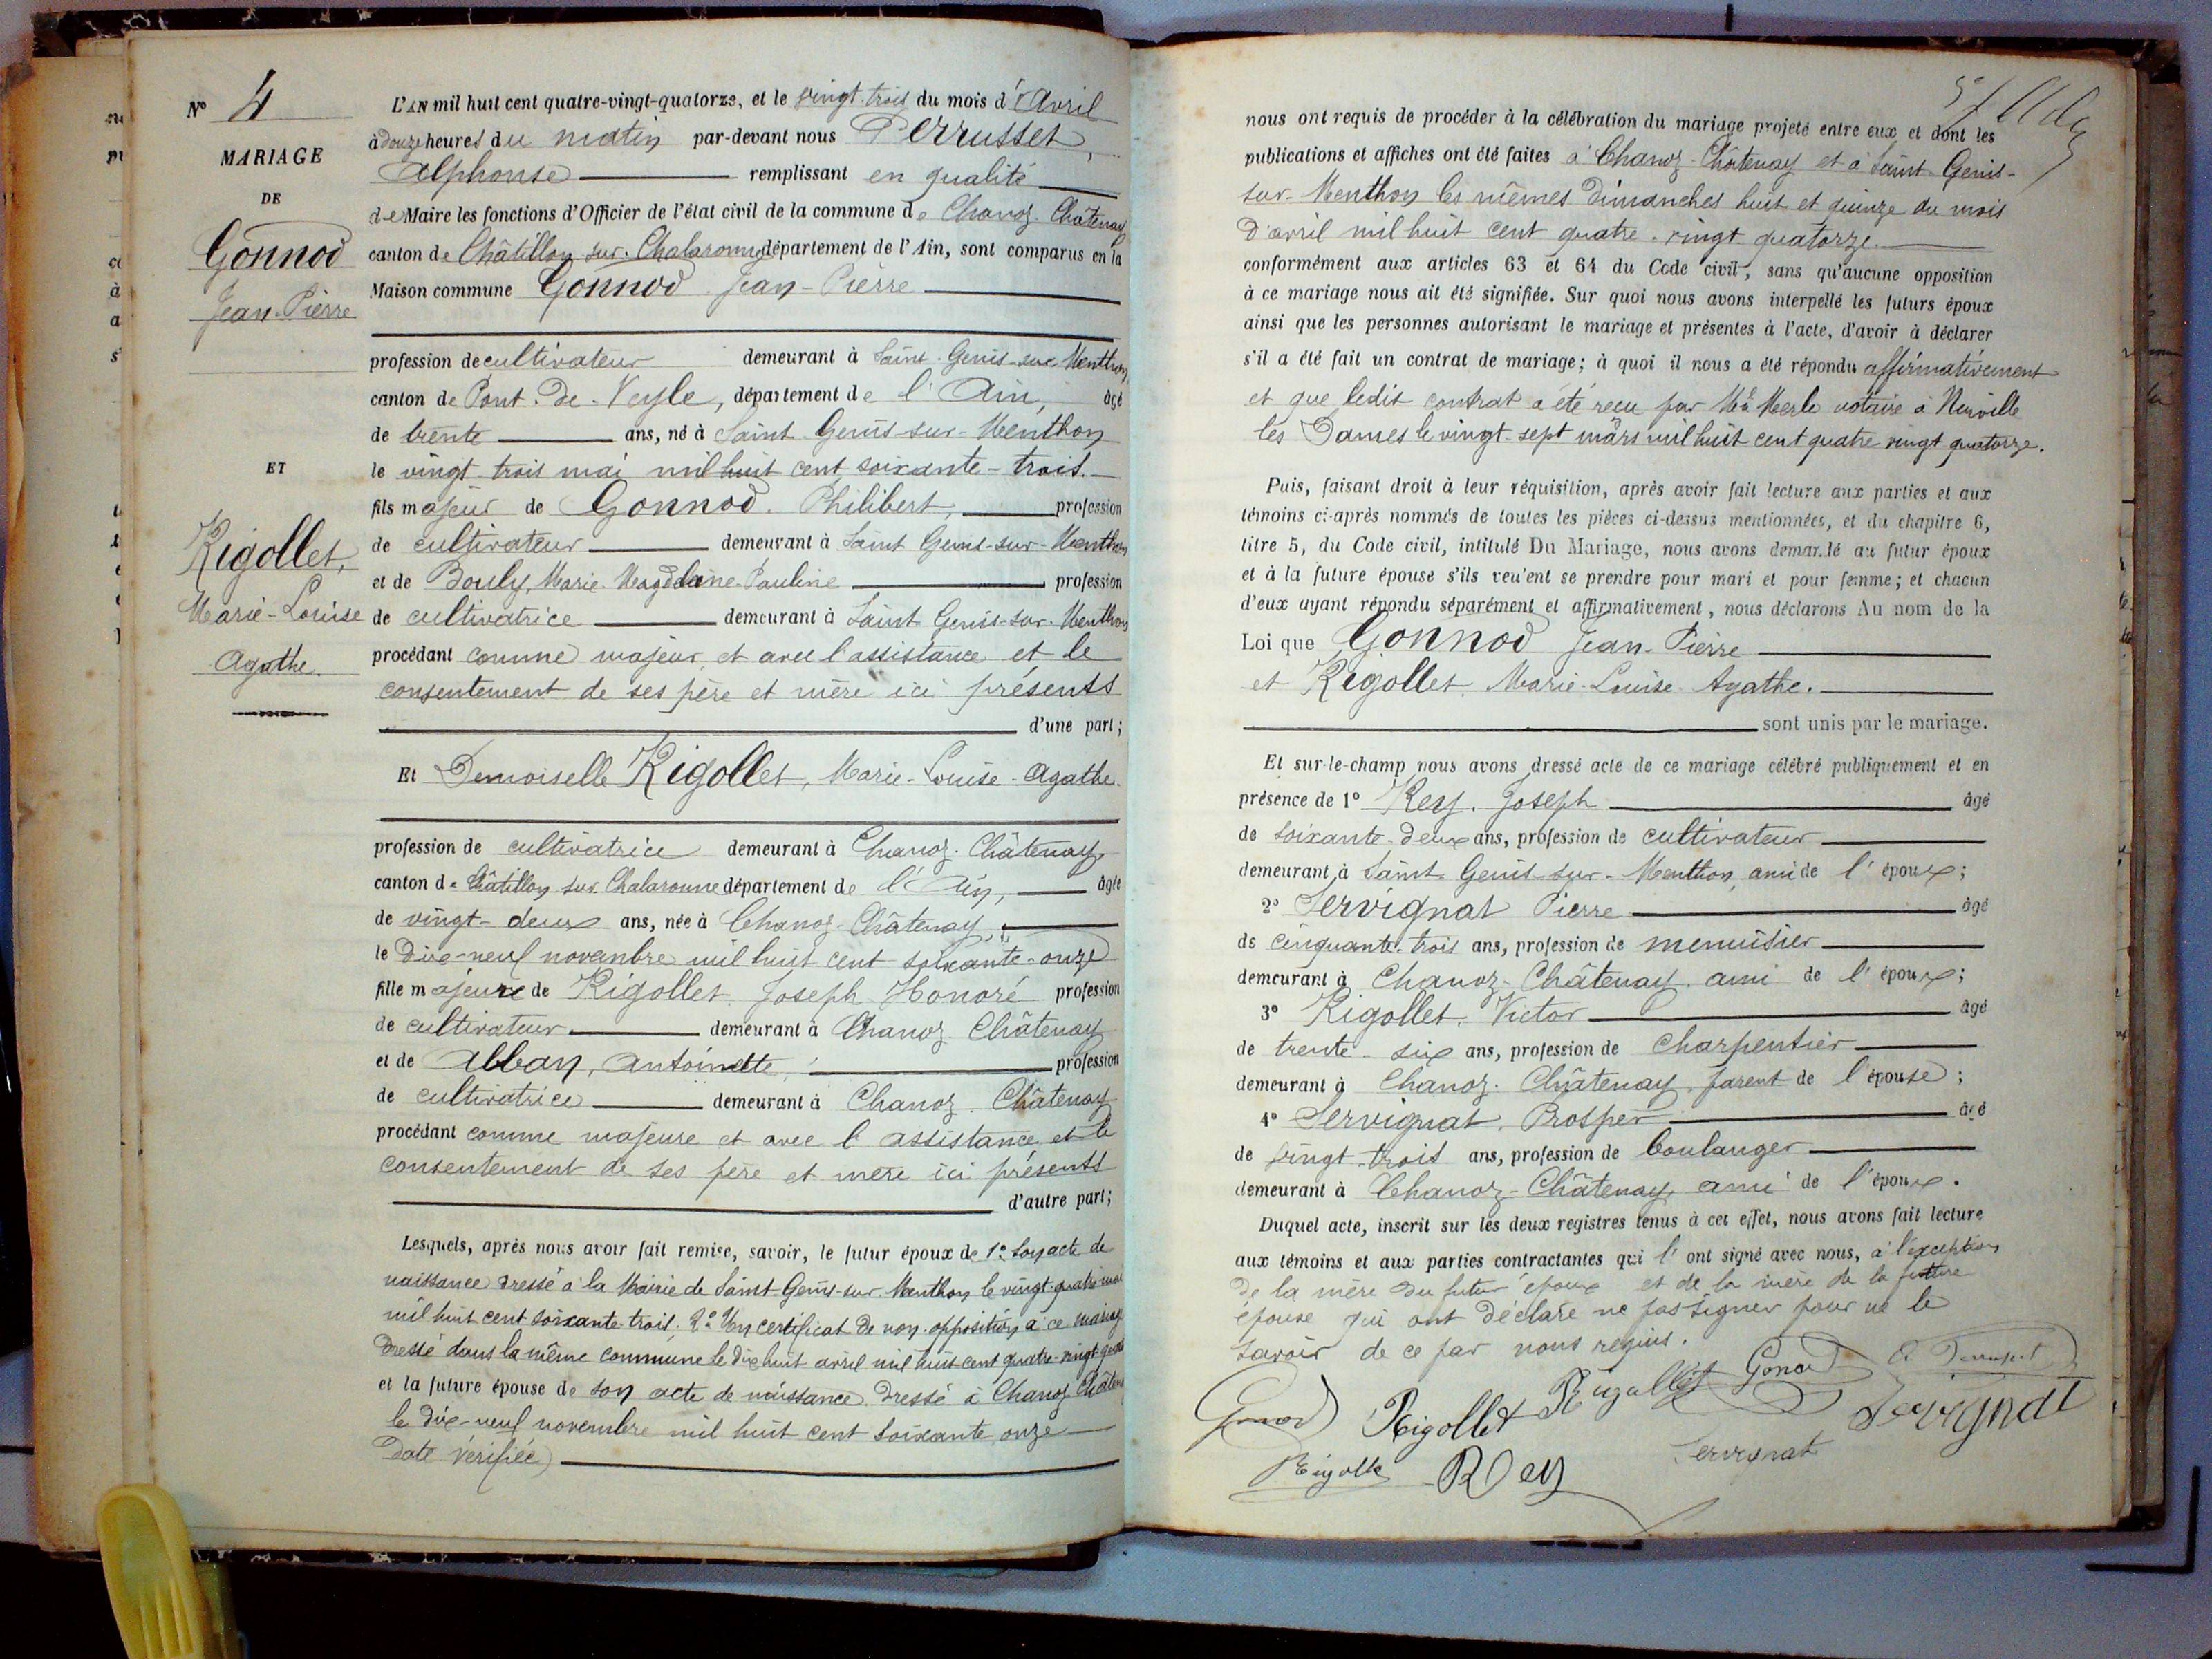 N° 4
MARIAGE
DE
Gonnod
Jean-Pierre
ET
Rigollet,
Marie-Louise
Agathe.
L'AN mil huit cent quatre-vingt-quatorze, et le vingt-trois du mois d'Avril
à douze heures du matin par-devant nous Perrusset,
Alphonse remplissant en qualité
de Maire les fonctions d'Officier de l'état civil de la commune de Chanoz-Châtenay
canton de Châtillon-sur-Chalaronne département de l'Ain, sont comparus en la
Maison commune Gonnod Jean-Pierre
profession de cultivateur demeurant à Saint-Genis-sur-Menthon
canton de Pont-de-Veyle, département de l'Ain, âgé
de trente ans, né à Saint-Genis-sur-Menthon
le vingt-trois mai mil huit cent soixante-trois.
fils majeur de Gonnod. Philibert, profession
de cultivateur demeurant à Saint Genis-sur-Menthon
et de Bouly, Marie-Magdelaine-Pauline profession
de cultivatrice demeurant à Saint Genis-sur-Menthon
procédant comme majeur et avec l'assistance et le
consentement de ses père et mère ici présents
d'une part;
Et Demoiselle Rigollet, Marie-Louise-Agathe.
profession de cultivatrice demeurant à Chanoz-Châtenay,
canton de Châtillon sur Chalaronne département de l'Ain, âgée
de vingt-deux ans, née à Chanoz-Châtenay,
le dix-neuf novembre mil huit cent soixante-onze
fille majeure de Rigollet Joseph Honoré profession
de cultivateur demeurant à Chanoz Châtenay
et de Alban, Antoinette, profession
de cultivatrice demeurant à Chanoz. Châtenay
procédant comme majeure et avec l'assistance et le
consentement de ses père et mère ici présents
d'autre part;
Lesquels, après nous avoir fait remise, savoir, le futur époux de 1° Son acte de
naissance dressé à la Mairie de Saint-Genis-sur-Menthon le vingt-quatre mai
mil huit cent soixante-trois. 2° Un certificat de non-opposition à ce mariage
dressé dans la même commune le dix huit avril mil huit cent quatre-vingt
et la future épouse de son acte de naissance dressé à Chanoz Châtenay
le dix-neuf novembre mil huit cent soixante onze
Date vérifiée)
nous ont requis de procéder à la célébration du mariage projeté entre eux et dont les
publications et affiches ont été faites à Chanoz-Châtenay et à Saint Genis-
sur-Menthon les mêmes Dimanches huit et quinze du mois
d'avril mil huit cent quatre-vingt quatorze.
conformément aux articles 63 et 64 du Code civil, sans qu'aucune opposition
à ce mariage nous ait été signifiée. Sur quoi nous avons interpellé les futurs époux
ainsi que les personnes autorisant le mariage et présentes à l'acte, d'avoir à déclarer
s'il a été fait un contrat de mariage; à quoi il nous a été répondu affirmativement
et que ledit contrat a été reçu par Me Merle notaire à Neuville
les Dames le vingt-sept mars mil huit cent quatre vingt quatorze.
Puis, faisant droit à leur réquisition, après avoir fait lecture aux parties et aux
témoins ci-après nommés de toutes les pièces ci-dessus mentionnées, et du chapitre 6,
titre 5, du Code civil, intitulé Du Mariage, nous avons demandé au futur époux
et à la future épouse s'ils veulent se prendre pour mari et pour femme; et chacun
d'eux ayant répondu séparément et affirmativement, nous déclarons Au nom de la
Loi que Gonnod Jean-Pierre
et Rigollet, Marie-Louise Agathe.
sont unis par le mariage.
Et sur-le-champ nous avons dressé acte de ce mariage célébré publiquement et en
présence de 1° Rey. Joseph âgé
de soixante-deux ans, profession de cultivateur
demeurant à Saint-Genis-sur-Menthon, ami de l'époux;
2° Servignat Pierre âgé
de cinquante-trois ans, profession de menuisier
demeurant à Chanoz-Châtenay, ami de l'époux;
3° Rigollet, Victor âgé
de trente-six ans, profession de Charpentier
demeurant à Chanoz-Châtenay, parent de l'épouse;
4° Servignat, Prosper âgé
de vingt-trois ans, profession de boulanger
demeurant à Chanoz-Châtenay, ami de l'époux.
Duquel acte, inscrit sur les deux registres tenus à cet effet, nous avons fait lecture
aux témoins et aux parties contractantes qui l'ont signé avec nous, à l'exception
de la mère du futur époux et de la mère de la future
épouse qui ont déclaré ne pas signer pour ne le
savoir de ce par nous requis.
Gonod Rigollet Rigollet Gonod
Servignat
Servignat
Rigollet Rey